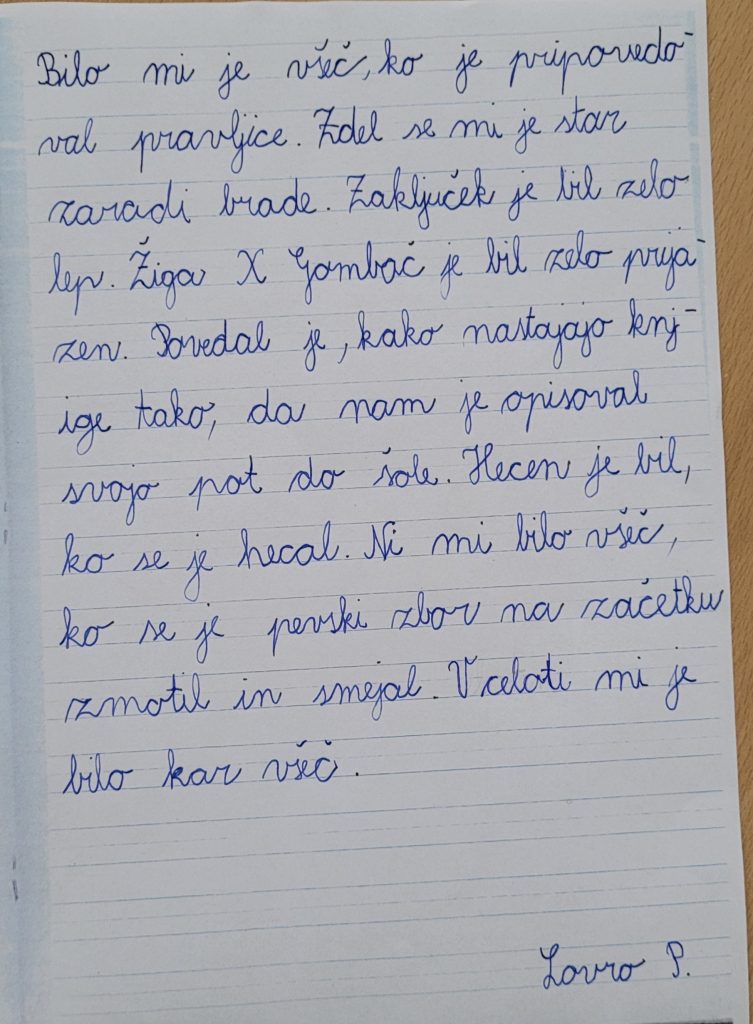 Bilo mi je všeč, ko je pripovedo-
val pravljice. Zdel se mi je star
zaradi brade. Zaključek je bil zelo
lep. Žiga X Gombač je bil zelo prija-
zen. Povedal je, kako nastajajo knj-
ige tako, da nam je opisoval
svojo pot do šole. Hecen je bil,
ko se je hecal. Ni mi bilo všeč,
ko se je pevski zbor na začetku
zmotil in smejal. V celoti mi je
bilo kar všeč.
Lovro P.